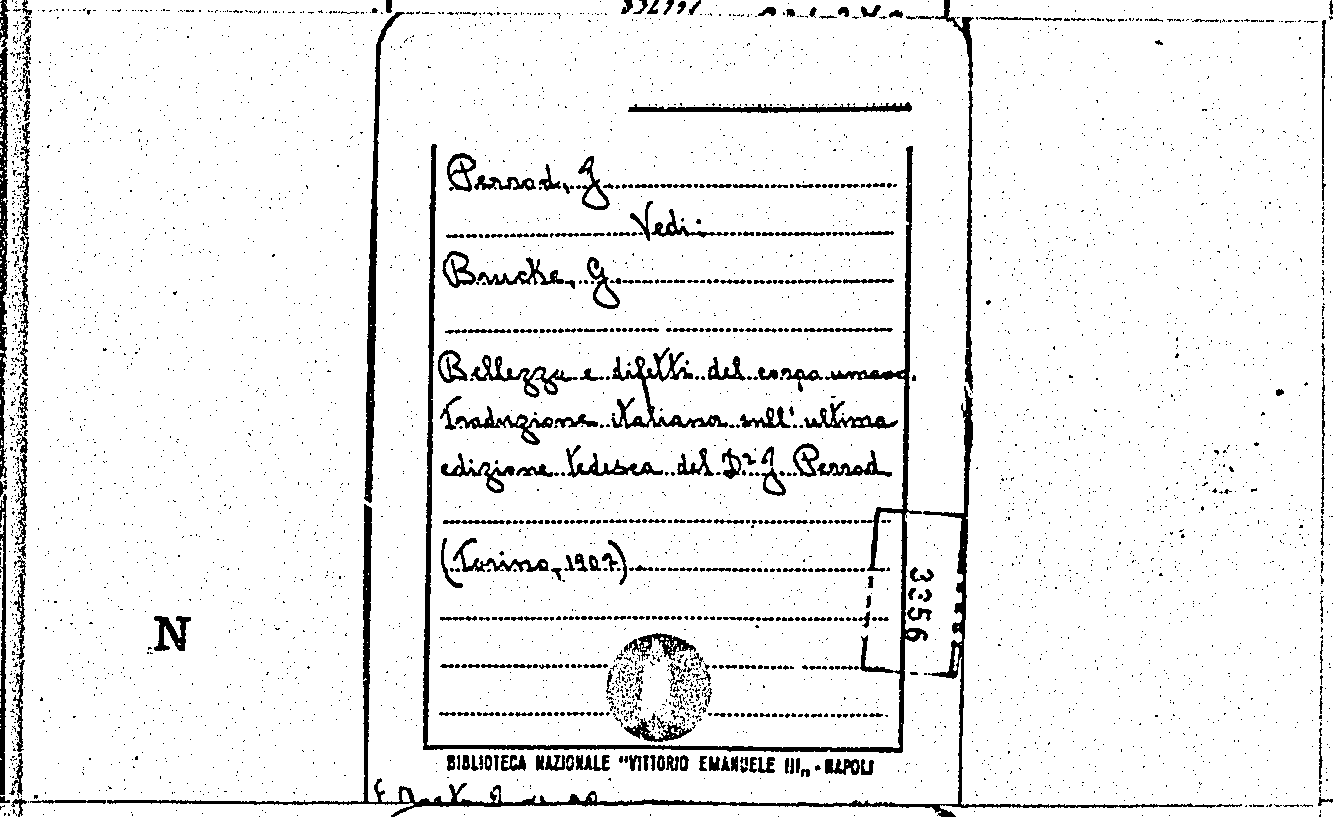 Perrod, J
Vedi:
Brucke, G.
Bellezza e difetti del corpo umano.
Traduzione italiana sull'ultima
edizione tedesca del Dr J Perrod
(Torino, 1907).
3356
N
BIBLIOTECA NAZIONALE "VITTORIO EMANUELE III„ - NAPOLI